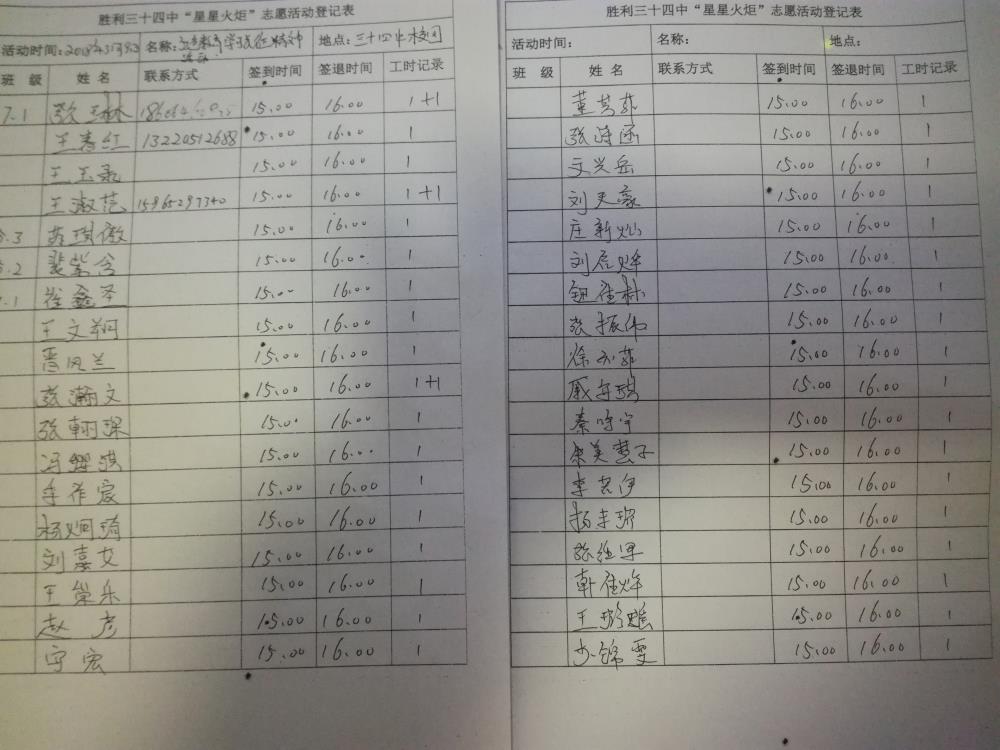 胜利三十四中“星星火炬”志愿活动登记表
活动时间: 名称: 学雷锋精神 地点: 三十四中校园
活动
班 级 姓 名 联系方式 签到时间 签退时间 工时记录
7.1 张玉林 15.00 16.00 1+1
王春红 13220512688 15.00 16.00 1
王玉录 15.00 16.00 1
王淑范 15965297340 15.00 16.00 1+1
15.00 16.00 1
裴紫含 15.00 16.00 1
崔鑫圣 15.00 16.00 1
王文翔 15.00 16.00 1
晋风兰 15.00 16.00 1
张瀚文 15.00 16.00 1+1
张翰琛 15.00 16.00 1
冯 15.00 16.00 1
李作宸 15.00 16.00 1
杨炯琦 15.00 16.00 1
刘嘉文 15.00 16.00 1
王荣乐 15.00 16.00 1
赵彦 15.00 16.00 1
宁宏 15.00 16.00 1
胜利三十四中“星星火炬”志愿活动登记表
活动时间: 名称: 地点:
班 级 姓 名 联系方式 签到时间 签退时间 工时记录
董其菲 15.00 16.00 1
张诗函 15.00 16.00 1
文兴岳 15.00 16.00 1
刘天豪 15.00 16.00 1
庄新灿 15.00 16.00 1
刘启烨 15.00 16.00 1
15.00 16.00 1
张振伟 15.00 16.00 1
徐 菲 15.00 16.00 1
戚 琪 15.00 16.00 1
秦 宇 15.00 16.00 1
美慧子 15.00 16.00 1
李 伊 15.00 16.00 1
杨丰瑞 15.00 16.00 1
张 15.00 16.00 1
韩佳烨 15.00 16.00 1
王 15.00 16.00 1
锦雯 15.00 16.00 1